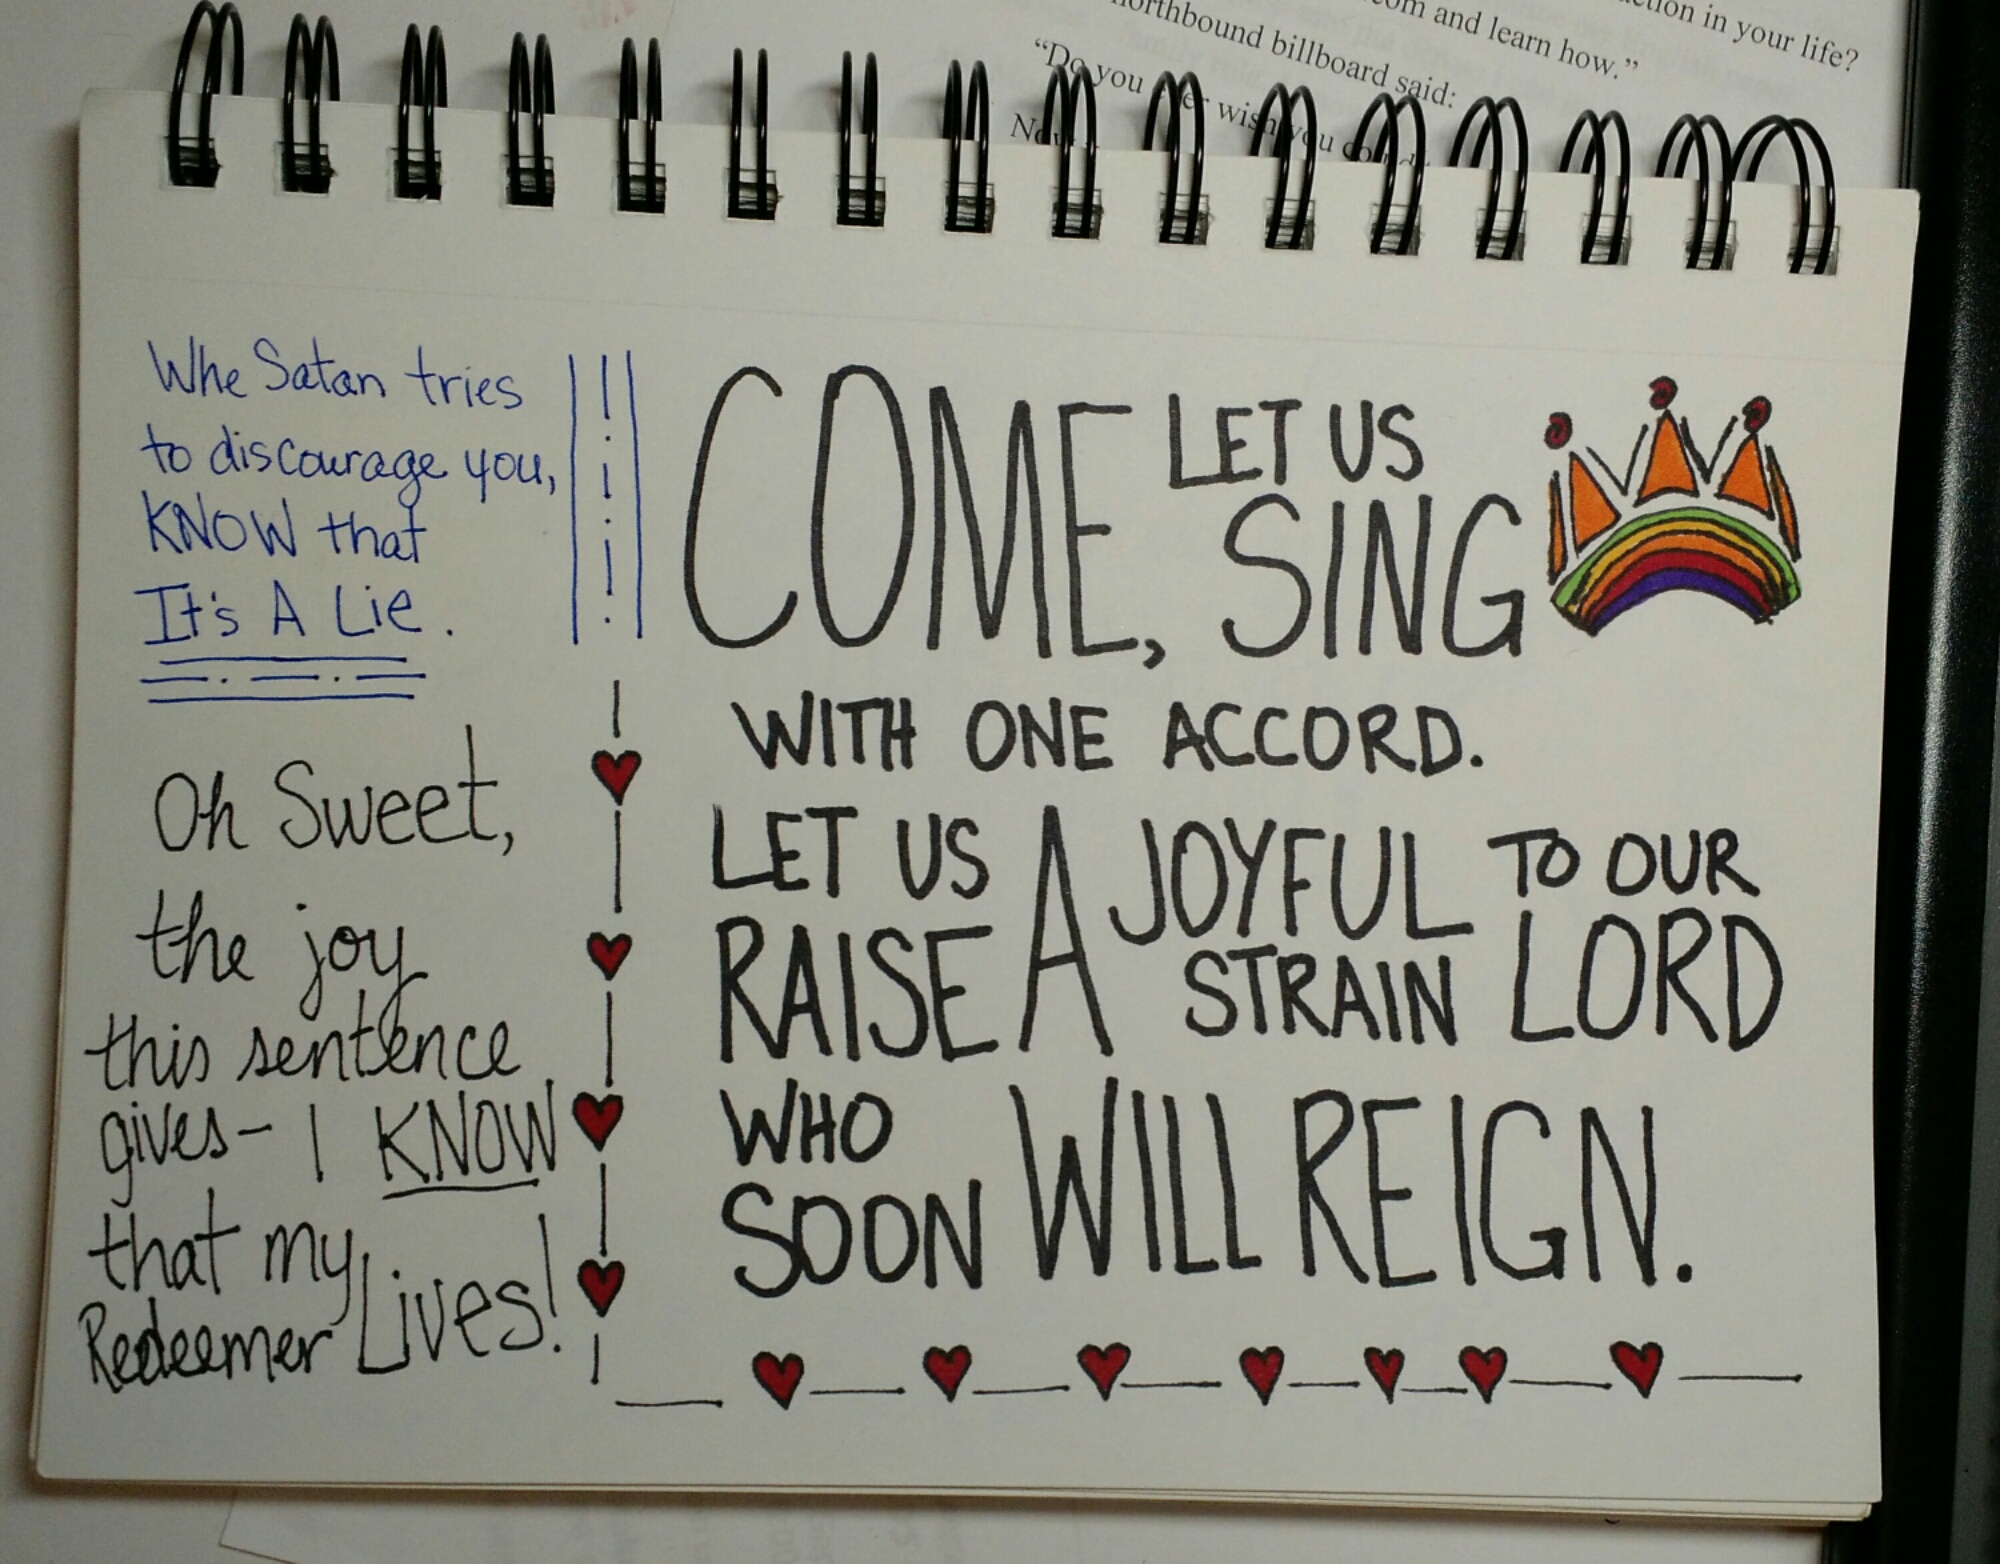 ction in your life?
om and learn how.”
orthbound billboard said:
“Do you wish you
Whe Satan tries
to discourage you,
KNOW that
It's A Lie.
Oh Sweet,
the joy
this sentence
gives- I KNOW
that my
Redeemer Lives!
COME, LET US
SING
WITH ONE ACCORD.
LET US
RAISE A JOYFUL
STRAIN
TO OUR
LORD
WHO
SOON WILL REIGN.